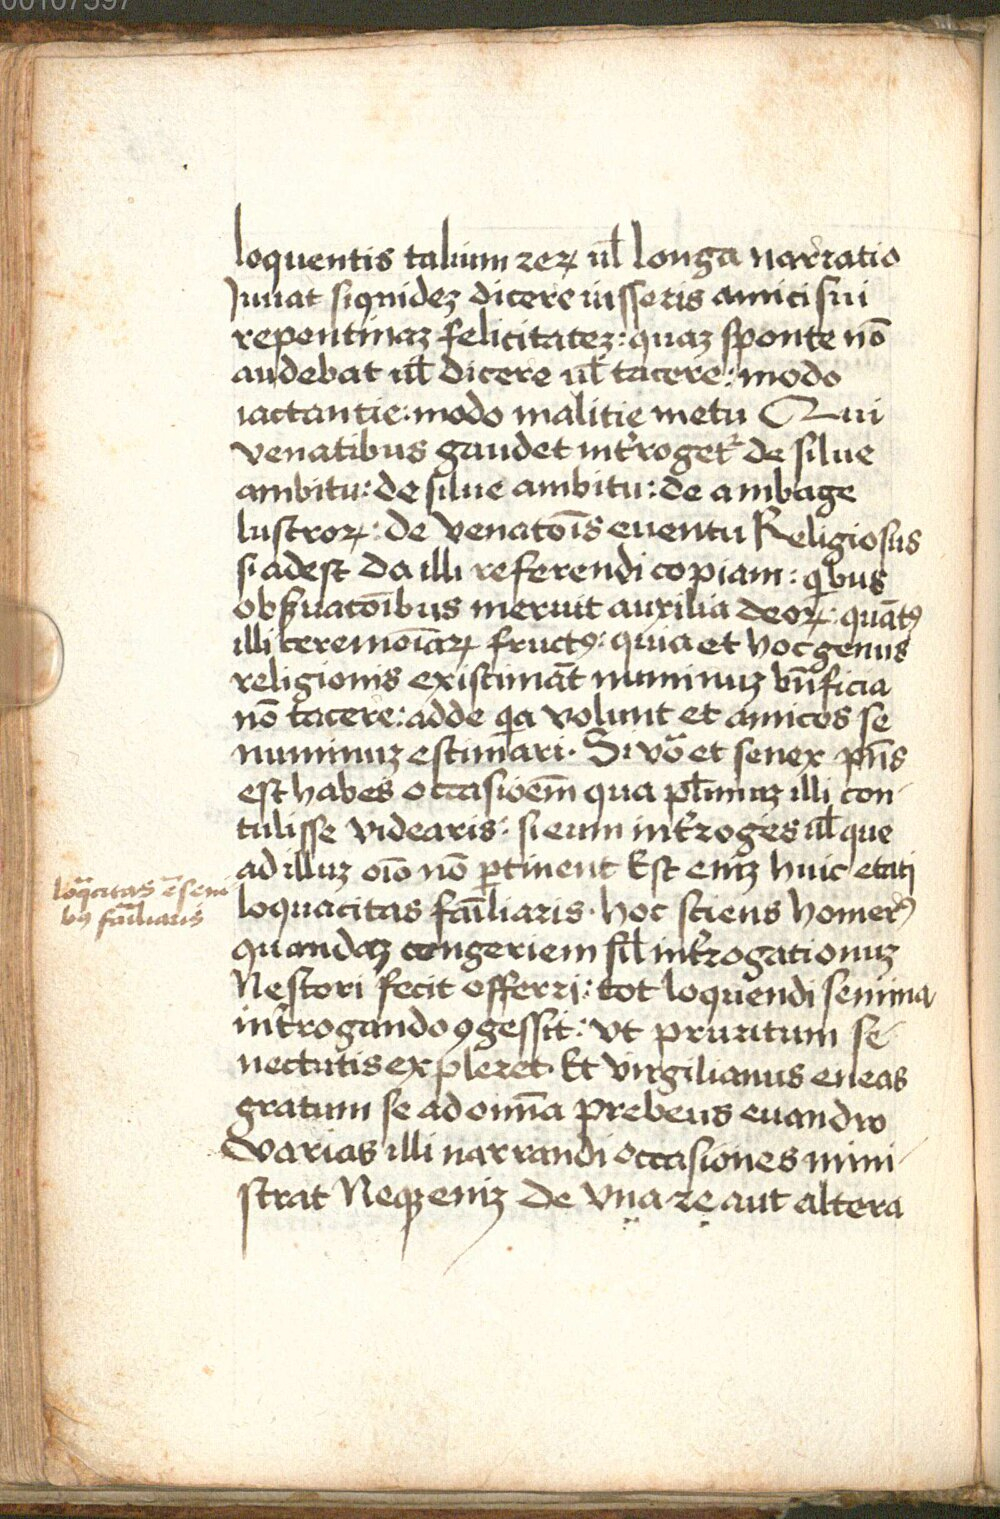 00107597
loquentis talium reꝝ ul̄ longa narratio
Juuat siquidez dicere iusseris amici sui
repentinaz felicitatez: quaz sponte nō
audebat ul̄ dicere ul̄ tacere: modo
iactantie: modo malitie metu Qui
venatibus gaudet int̓roget᷑ de silue
ambitu: de silue ambitu: de ambage
lustroꝝ: de venatōis euentu Religiosus
si adest da illi referendi copiam: qͥbus
obs̓uatōibus meruit auxilia deoꝝ: quātꝰ
illi ceremoīaꝝ fructꝰ: quia et hoc genus
religionis existimāt numinuz bn̄ficia
nō tacere: adde qͥa volunt et amicos se
numinuz estimari. Si vͦo et senex pn̄s
est habes occasioēm qua pl̄imuz illi con-
tulisse videaris: si eum int̓roges ul̄ que
ad illuz oīo nō ꝑtinent Est eniz huic etati
loquacitas fāiliaris. hoc sciens homerꝰ
quandaz congeriem sil̄ int̓rogationuz
Nestori fecit offerri: tot loquendi semina
int̓rogando ꝯgessit: vt pruritum se-
nectutis expleret. Et virgilianus eneas
gratum se ad om̄ia prebens euandro
varias illi narrandi occasiones mini-
strat Neqꝫ eniz de vna re aut altera
loqͣcitas ē seni
bꝰ fāiliaris